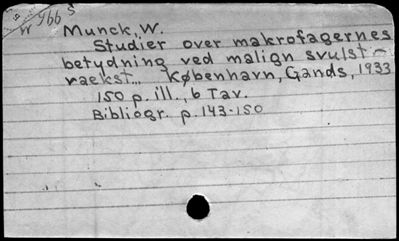 W 966 S
Munck, W.
Studier over makrofagernes
betydning ved malign svulst-
vaekst... København, Gands, 1933
150 p. ill., 6 Tav.
Bibliogr. p. 143-150